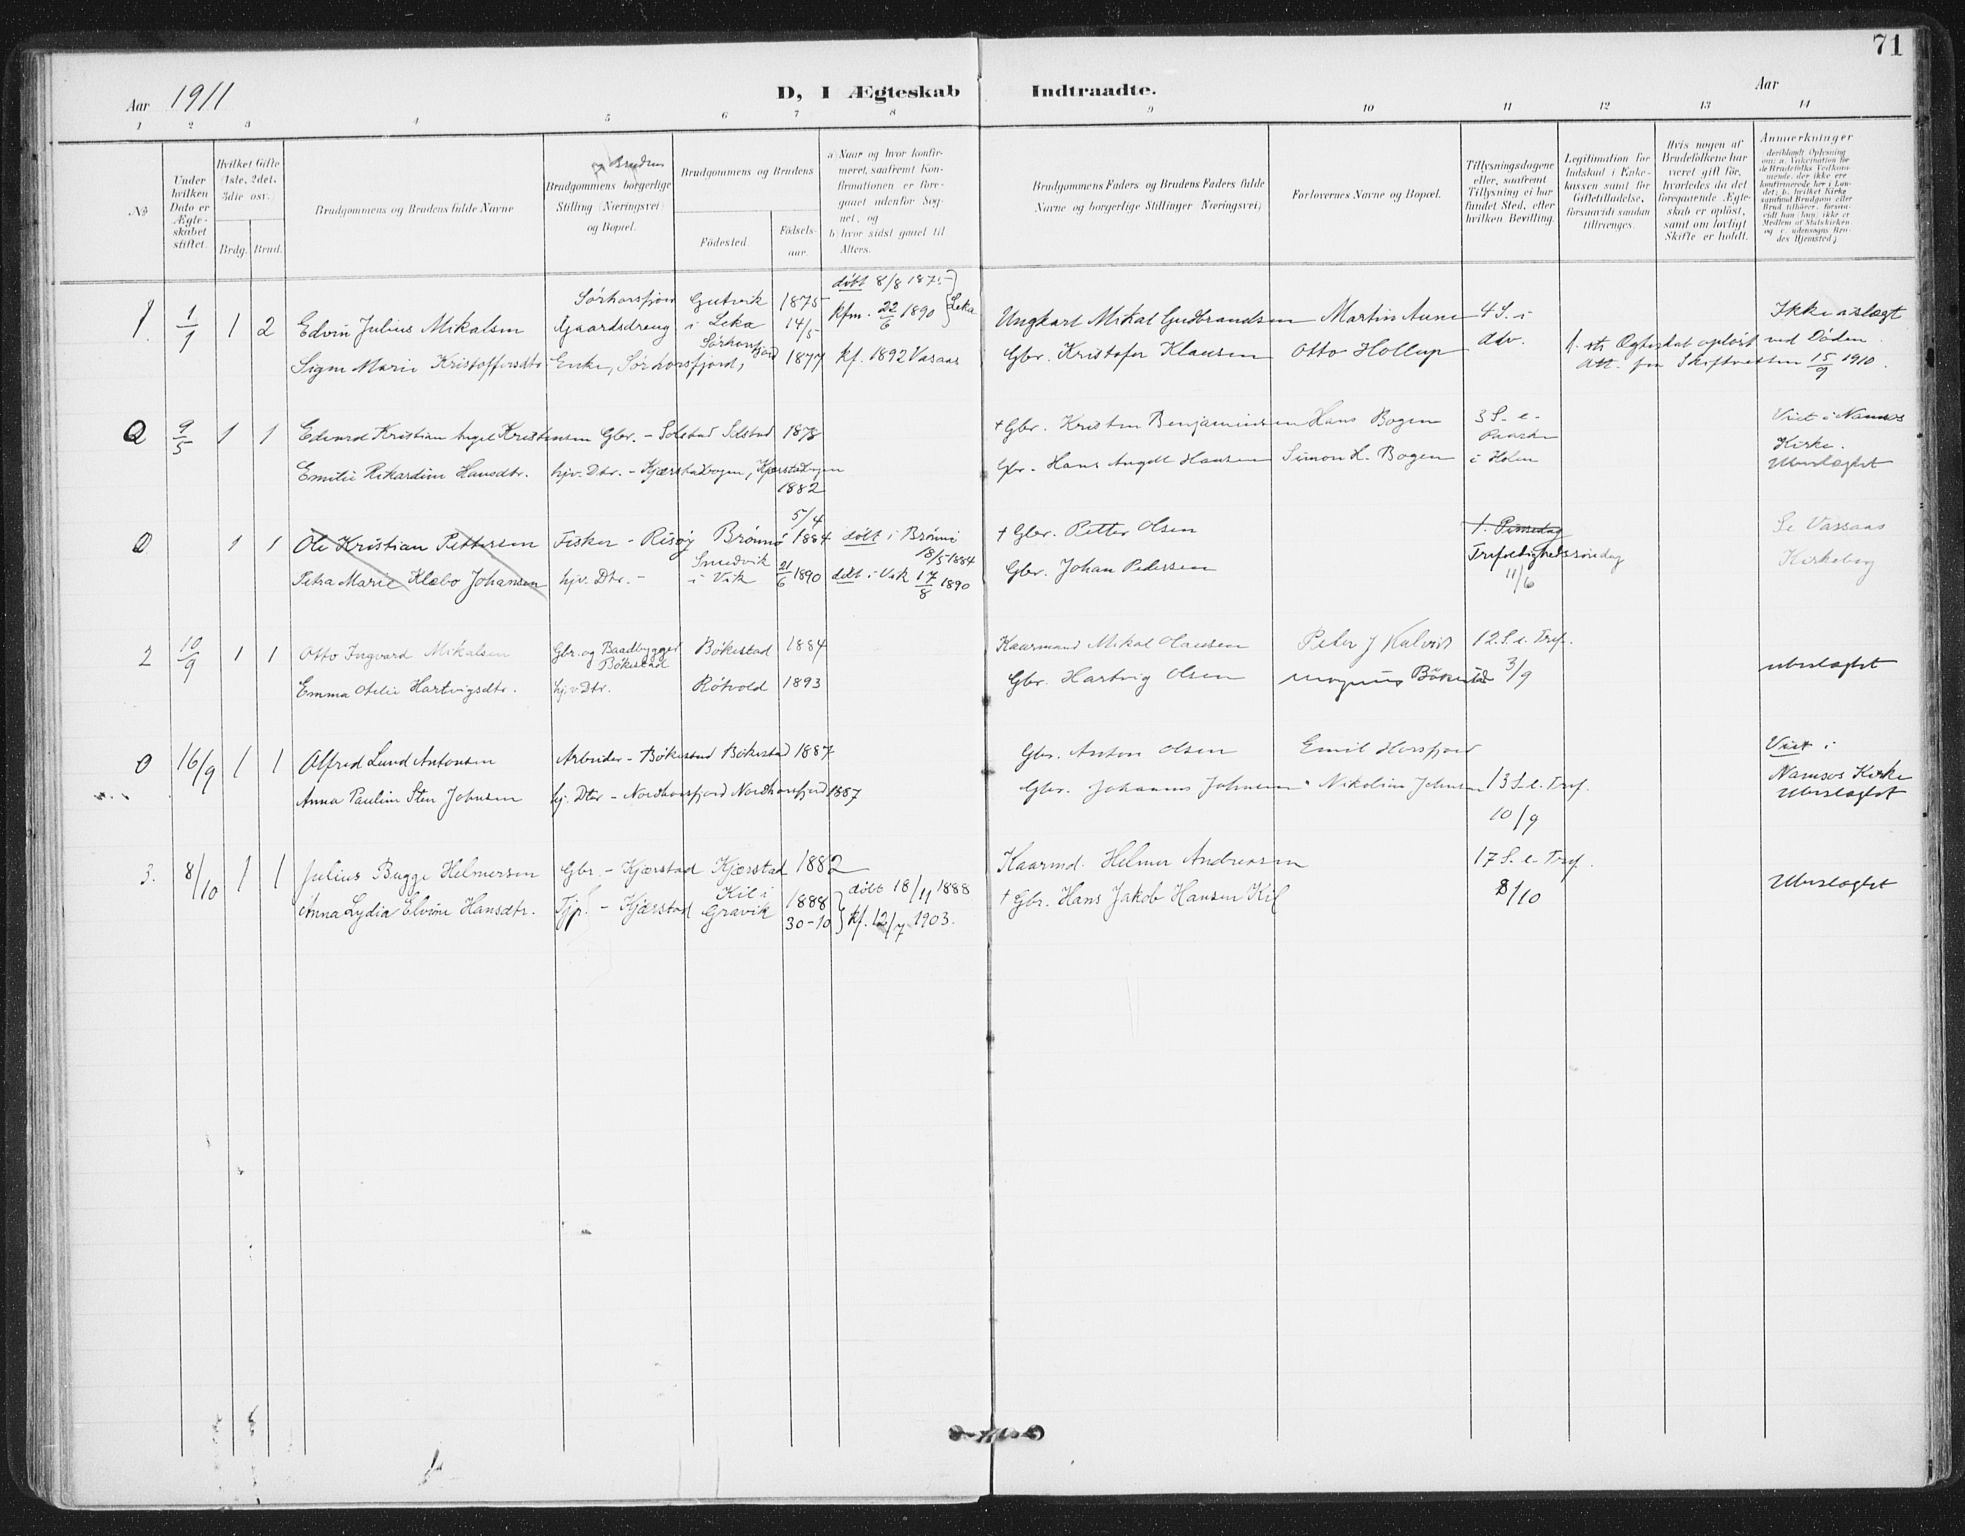 71
Aar 1911
D, I Ægteskab Indtraadte.
Aar
1 2 3 4 5 6 7 8 9 10 11 12 13 14
No
Under hvilken Dato er Ægteskabet stiftet.
Hvilket Gifte (1ste, 2det, 3die osv.)
Brdg. Brud.
Brudgommens og Brudens fulde Navne
og Brudens
Brudgommens borgerlige Stilling (Næringsvei) og Bopæl.
Brudgommens og Brudens
Födested. Födselsaar.
a) Naar og hvor konfirmeret, saafremt Konfirmationen er foregaaet udenfor Sognet, og
b) hvor sidst gaaet til Alters.
Brudgommens Faders og Brudens Faders fulde Navne og borgerlige Stillinger (Næringsvei)
Forlovernes Navne og Bopæl.
Tillysningsdagene eller, saafremt Tillysning ei har fundet Sted, efter hvilken Bevilling.
Legitimation for Indskud i Enkekassen samt for Giftetilladelse, forsaavidt saadan tiltrænges.
Hvis nogen af Brudefolkene har været gift för, hvorledes da det foregaaende Ægteskab er oplöst, samt om lovligt Skifte er holdt.
Anmerkninger
1. 1/1 1 2 Edvin Julius Mikalsen Sörhorsfjord Gaardsdreng Gutvik i Leka 1875 14/5 döbt 8/8 1875 kfm. 22/6 1890 } Leka Ungkarl Mikal Gudbrandsen Martin Aune 4 S. i Adv. Ikke i slegt
Signe Marie Kristoffersdtr Enke, Sörhorsfjord, Sörhorsfjord 1877 kf. 1892 Vasaas Gbr. Kristofer Klausen Otto Hollup 1. Ægteskab oplöst ved Döden. Att. fra Skifteretten 15/9 1910.
0 9/5 1 1 Edvard Kristian Angel Kristensen Gbr. - Solstad Solstad 1878 + Gbr. Kristen Benjaminsen Hans Bogen 3 S. e. Paaske i Holm Viet i Namsos Kirke. Ubeslægtet
Emilie Rikardine Hansdtr. hjv. Dtr. - Kjærstadbogen, Kjærstadbogen 1882 Gbr. Hans Angell Hansen Simon H. Bogen
0 1 1 Ole Kristian Pettersen Fisker - Risöy Brönnö 5/4 1884 döbt i Brönnö 18/5 1884 + Gbr. Petter Olsen 1. Pinsedag Trefoldighedssöndag 11/6 Se Vassaas Kirkebog
Petra Marie Klæbo Johansen hjv. Dtr. - Smedvik i Vik 21/6 1890 döbt i Vik 17/8 1890 Gbr. Johan Pedersen
2 10/9 1 1 Otto Ingvard Mikalsen Gbr. og Baadbygger Bökestad Bökestad 1884 Kaarmand Mikal Olausen Peter J Kalvik 12. S. e. Tref. 3/9 ubeslægtet
Emma Otelie Hartvigsdtr. hjv Dtr. Rötvold 1893 Gbr. Hartvig Olsen Magnus Bökestad
0 16/9 1 1 Alfred Lund Antonsen Arbeider - Bökestad Bökestad 1887 Gbr. Anton Olsen Emil Horsfjord Viet i Namsos Kirke Ubeslægtet
Anna Pauline Sten Johnsen hj. Dtr - Nordhorsfjord Nordhorsfjord 1887 Gbr. Johannes Johnsen Nikoline Johnsen 13 S. e. Tref. 10/9
3. 8/10 1 1 Julius Bugge Helmersen Gbr. - Kjærstad Kjærstad 1882 Kaarmd. Helmer Andreasen 17 S. e. Tref. 8/10 Ubeslægtet
Anna Lydia Elvine Hansdtr. Tjp. - Kjærstad Kil i Gravik 1888 30-10 } döbt 18/11 1888 kf. 12/7 1903. + Gbr. Hans Jakob Hansen Kil